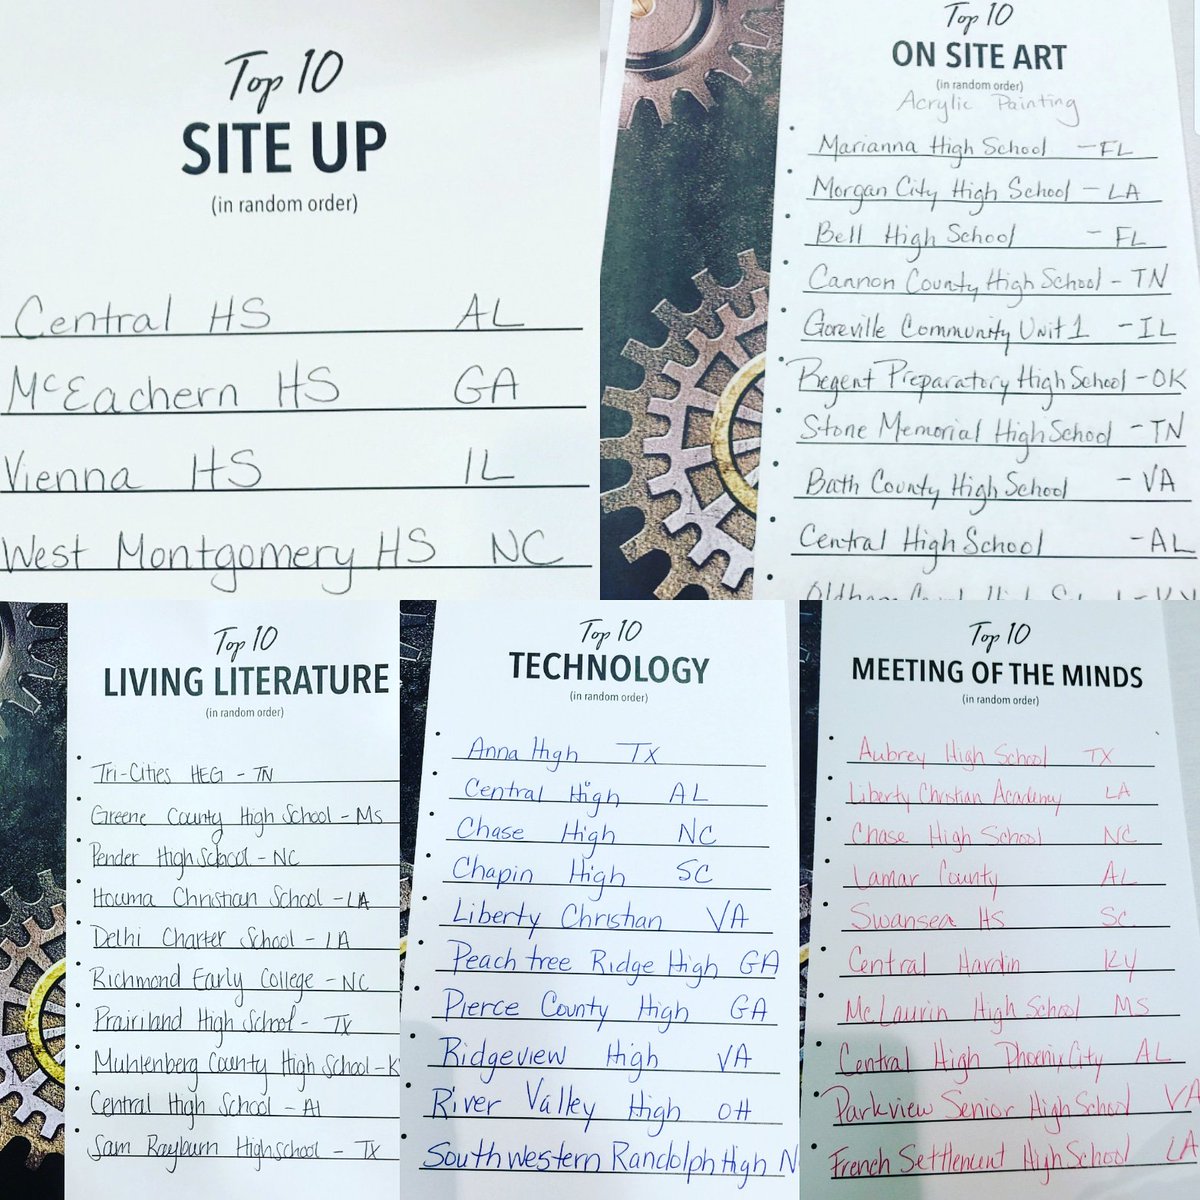 Top 10
SITE UP
(in random order)
Central HS AL
McEachern HS GA
Vienna HS IL
West Montgomery HS NC
Top 10
ON SITE ART
(in random order)
Acrylic Painting
Marianna High School - FL
Morgan City High School - LA
Bell High School - FL
Cannon County High School - TN
Goreville Community Unit 1 - IL
Regent Preparatory High School - OK
Stone Memorial High School - TN
Bath County High School - VA
Central High School - AL
Top 10
LIVING LITERATURE
(in random order)
Tri-Cities HEG - TN
Greene County High School - MS
Pender High School - NC
Houma Christian School - LA
Delhi Charter School - LA
Richmond Early College - NC
Prairiland High School - TX
Muhlenberg County High School - K
Central High School - Al
Sam Rayburn High school - TX
Top 10
TECHNOLOGY
(in random order)
Anna High TX
Central High AL
Chase High NC
Chapin High SC
Liberty Christian VA
Peach tree Ridge High GA
Pierce County High GA
Ridgeview High VA
River Valley High OH
Southwestern Randolph High N
Top 10
MEETING OF THE MINDS
(in random order)
Aubrey High School TX
Liberty Christian Academy LA
Chase High School NC
Lamar County AL
Swansea HS SC
Central Hardin KY
McLaurin High School MS
Central High Phoenix City AL
Parkview Senior High School VA
French Settlement High School LA